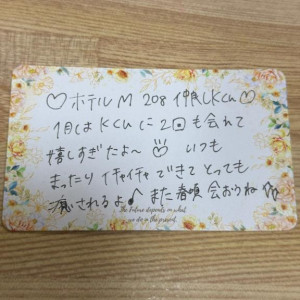 ♡ホテルM 208 仲良しKくん♡
1月はKくんに2回も会れて
嬉しすぎたよ〜 いつも
まったりイチャイチャできてとっても
癒されるよ♪また春頃会おうね
The future depends on what
we do in the present.